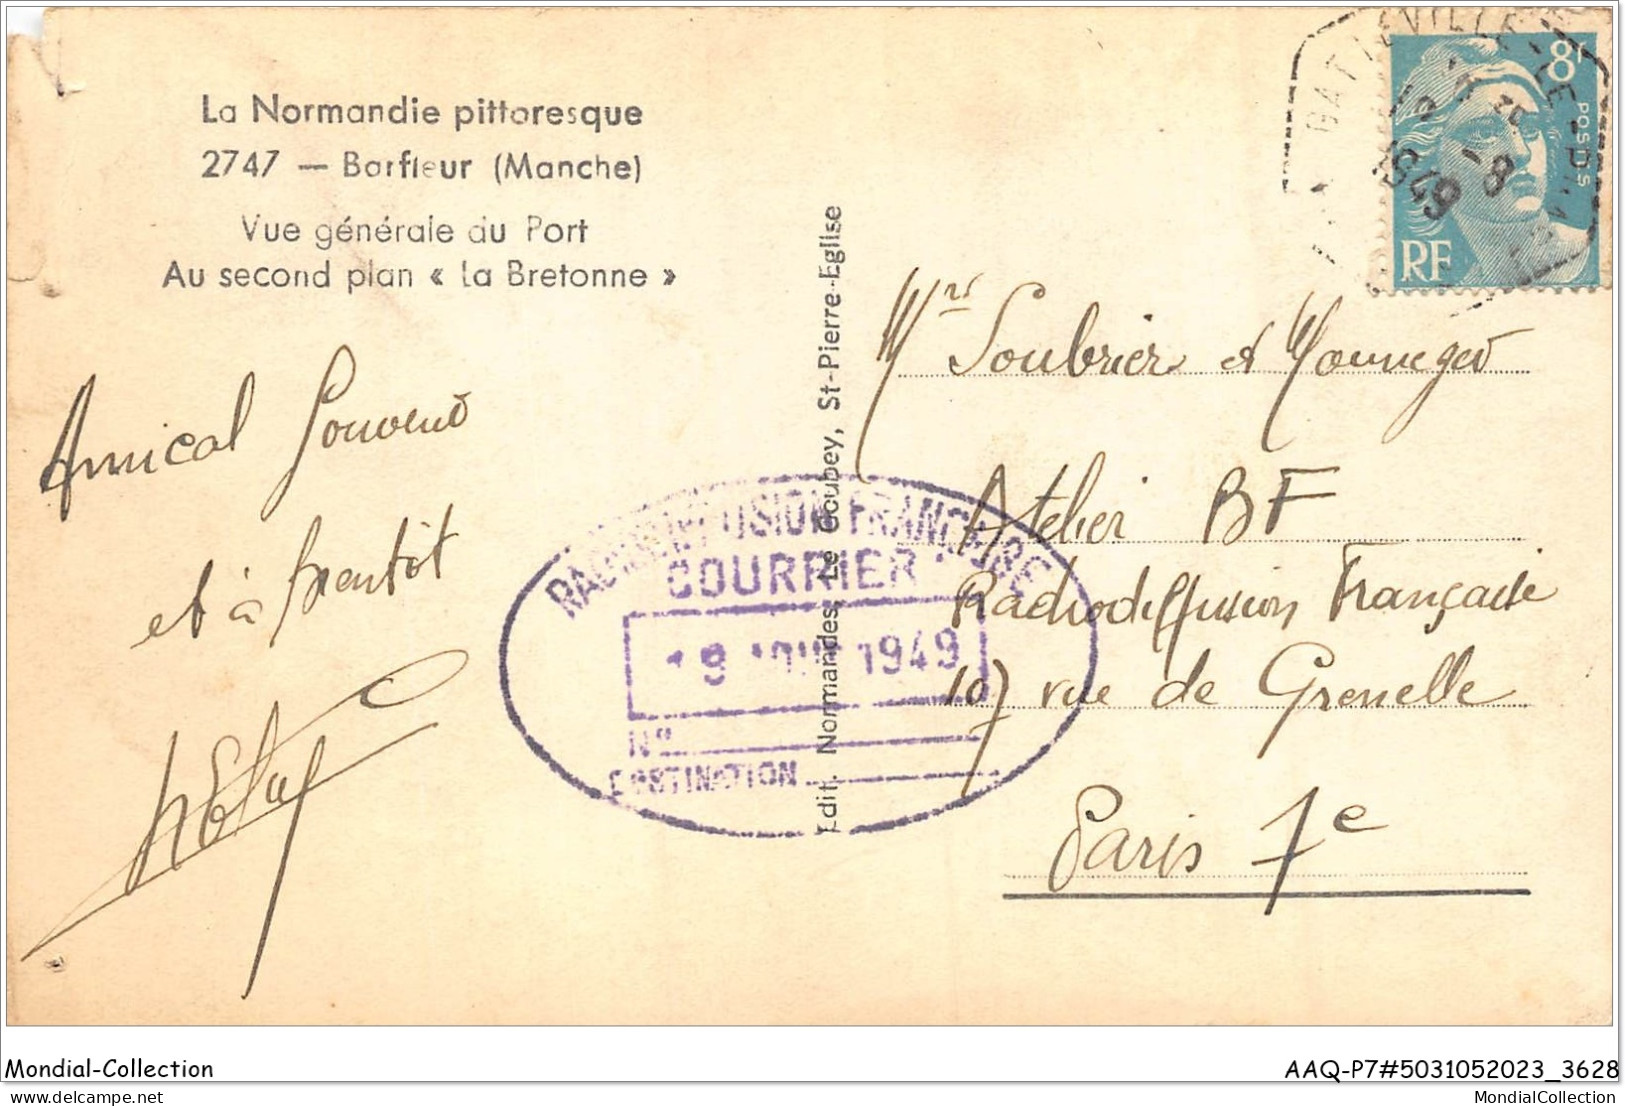 La Normandie pittoresque
2747 — Barfleur (Manche)
Vue générale du Port
Au second plan « La Bretonne »
Amical Souvenir
et à bientôt
Edit. Normandes, Le Goubey, St-Pierre-Eglise
GATTEVILLE-LE-P
18
-8
1949
8f
POSTES
RF
RADIODIFFUSION FRANÇAISE
COURRIER
19 AOUT 1949
N°
DESTINATION
Mrs Soubrier et
Atelier BF
Radiodiffusion Française
107 rue de Grenelle
Paris 7e
Mondial-Collection
AAQ-P7#5031052023_3628
delcampe.net
MondialCollection